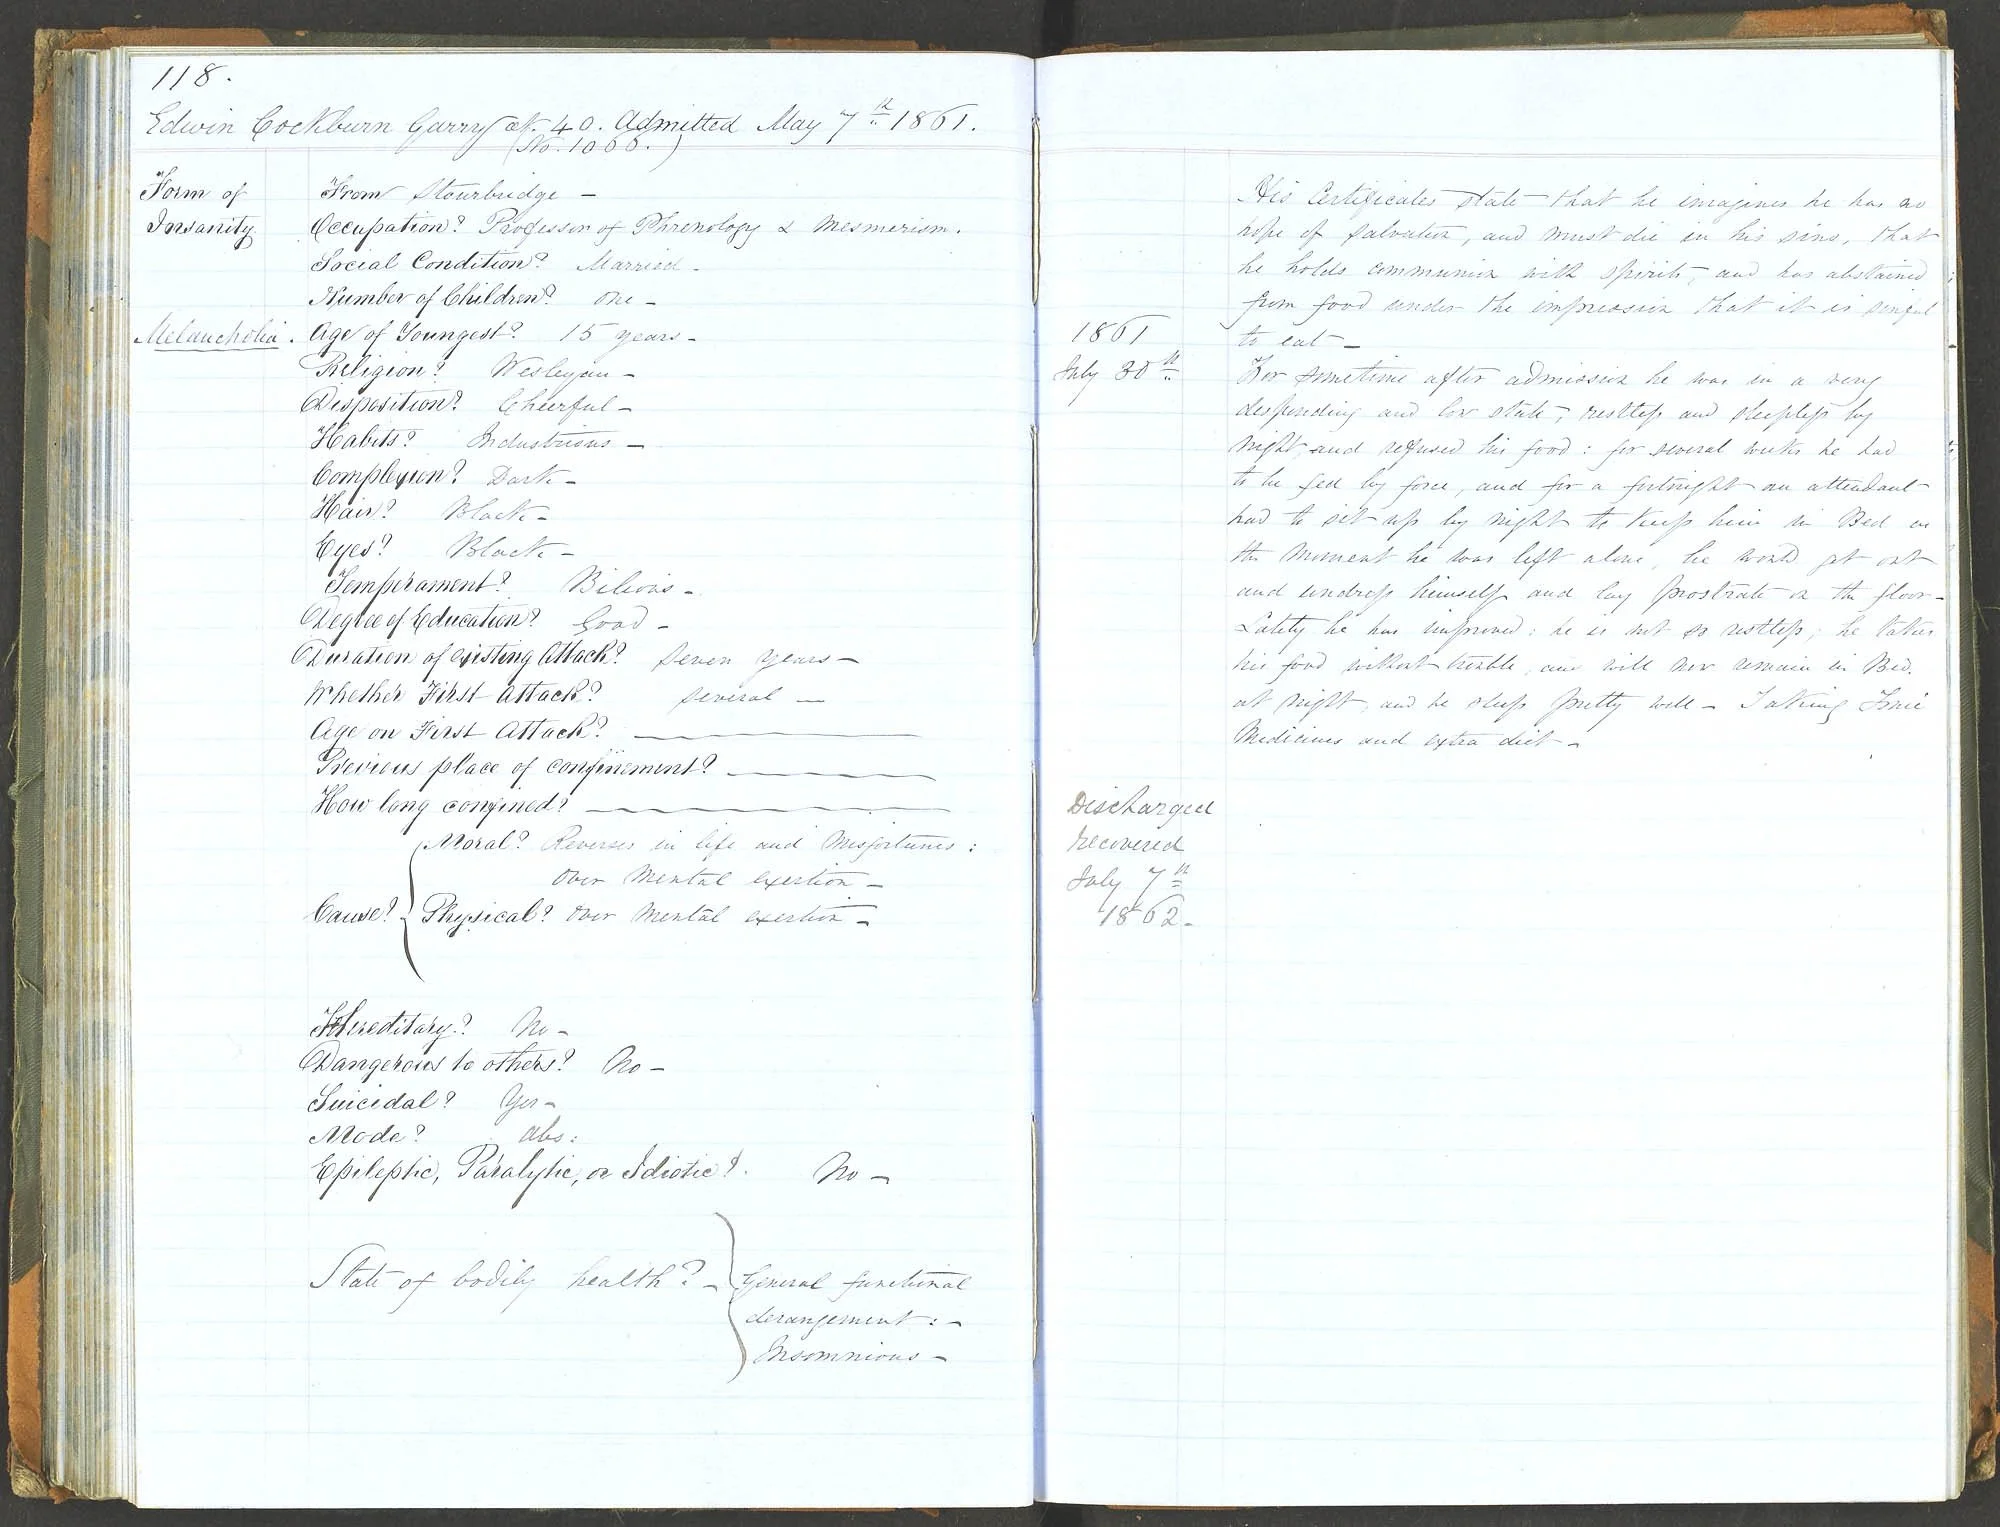 118.
Edwin Cockburn Garry æt. 40. Admitted May 7th 1861.
(No. 1066.)
Form of
Insanity
Melancholia.
From Stourbridge —
Occupation? Professor of Phrenology & Mesmerism.
Social Condition? Married —
Number of Children? One —
Age of Youngest? 15 years —
Religion? Wesleyan —
Disposition? Cheerful —
Habits? Industrious —
Complexion? Dark —
Hair? Black —
Eyes? Black —
Temperament? Bilious —
Degree of Education? Good —
Duration of existing Attack? Seven years —
Whether First Attack? Several —
Age on First Attack? ———
Previous place of confinement? ———
How long confined? ———
Cause? Moral? Reverses in life and Misfortunes:
Over Mental exertion —
Physical? Over Mental exertion —
Hereditary? No —
Dangerous to others? No —
Suicidal? Yes —
Mode? Abs:
Epileptic, Paralytic, or Idiotic? No —
State of bodily health? — General functional
derangement: —
Insomnious —
His Certificates state that he imagines he has no
hope of salvation, and must die in his sins, that
he holds communion with spirits, and has abstained
from food under the impression that it is sinful
to eat —
1861
July 30th
For sometime after admission he was in a very
desponding and low state, restless and sleepless by
night, and refused his food: for several weeks he had
to be fed by force, and for a fortnight an attendant
had to sit up by night to keep him in Bed as
the moment he was left alone, he would get out
and undress himself and lay prostrate on the floor —
Lately he has improved: he is not so restless, he takes
his food without trouble, and will now remain in Bed
at night, and he sleeps pretty well — Taking Tonic
Medicines and extra diet —
Discharged
recovered
July 7th
1862 —